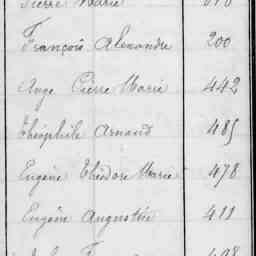 Pierre Marie
François Alexandre 200
Ange Pierre Marie 442
Théophile Arnaud 485
Eugène Théodore Marie 478
Eugène Augustin 411